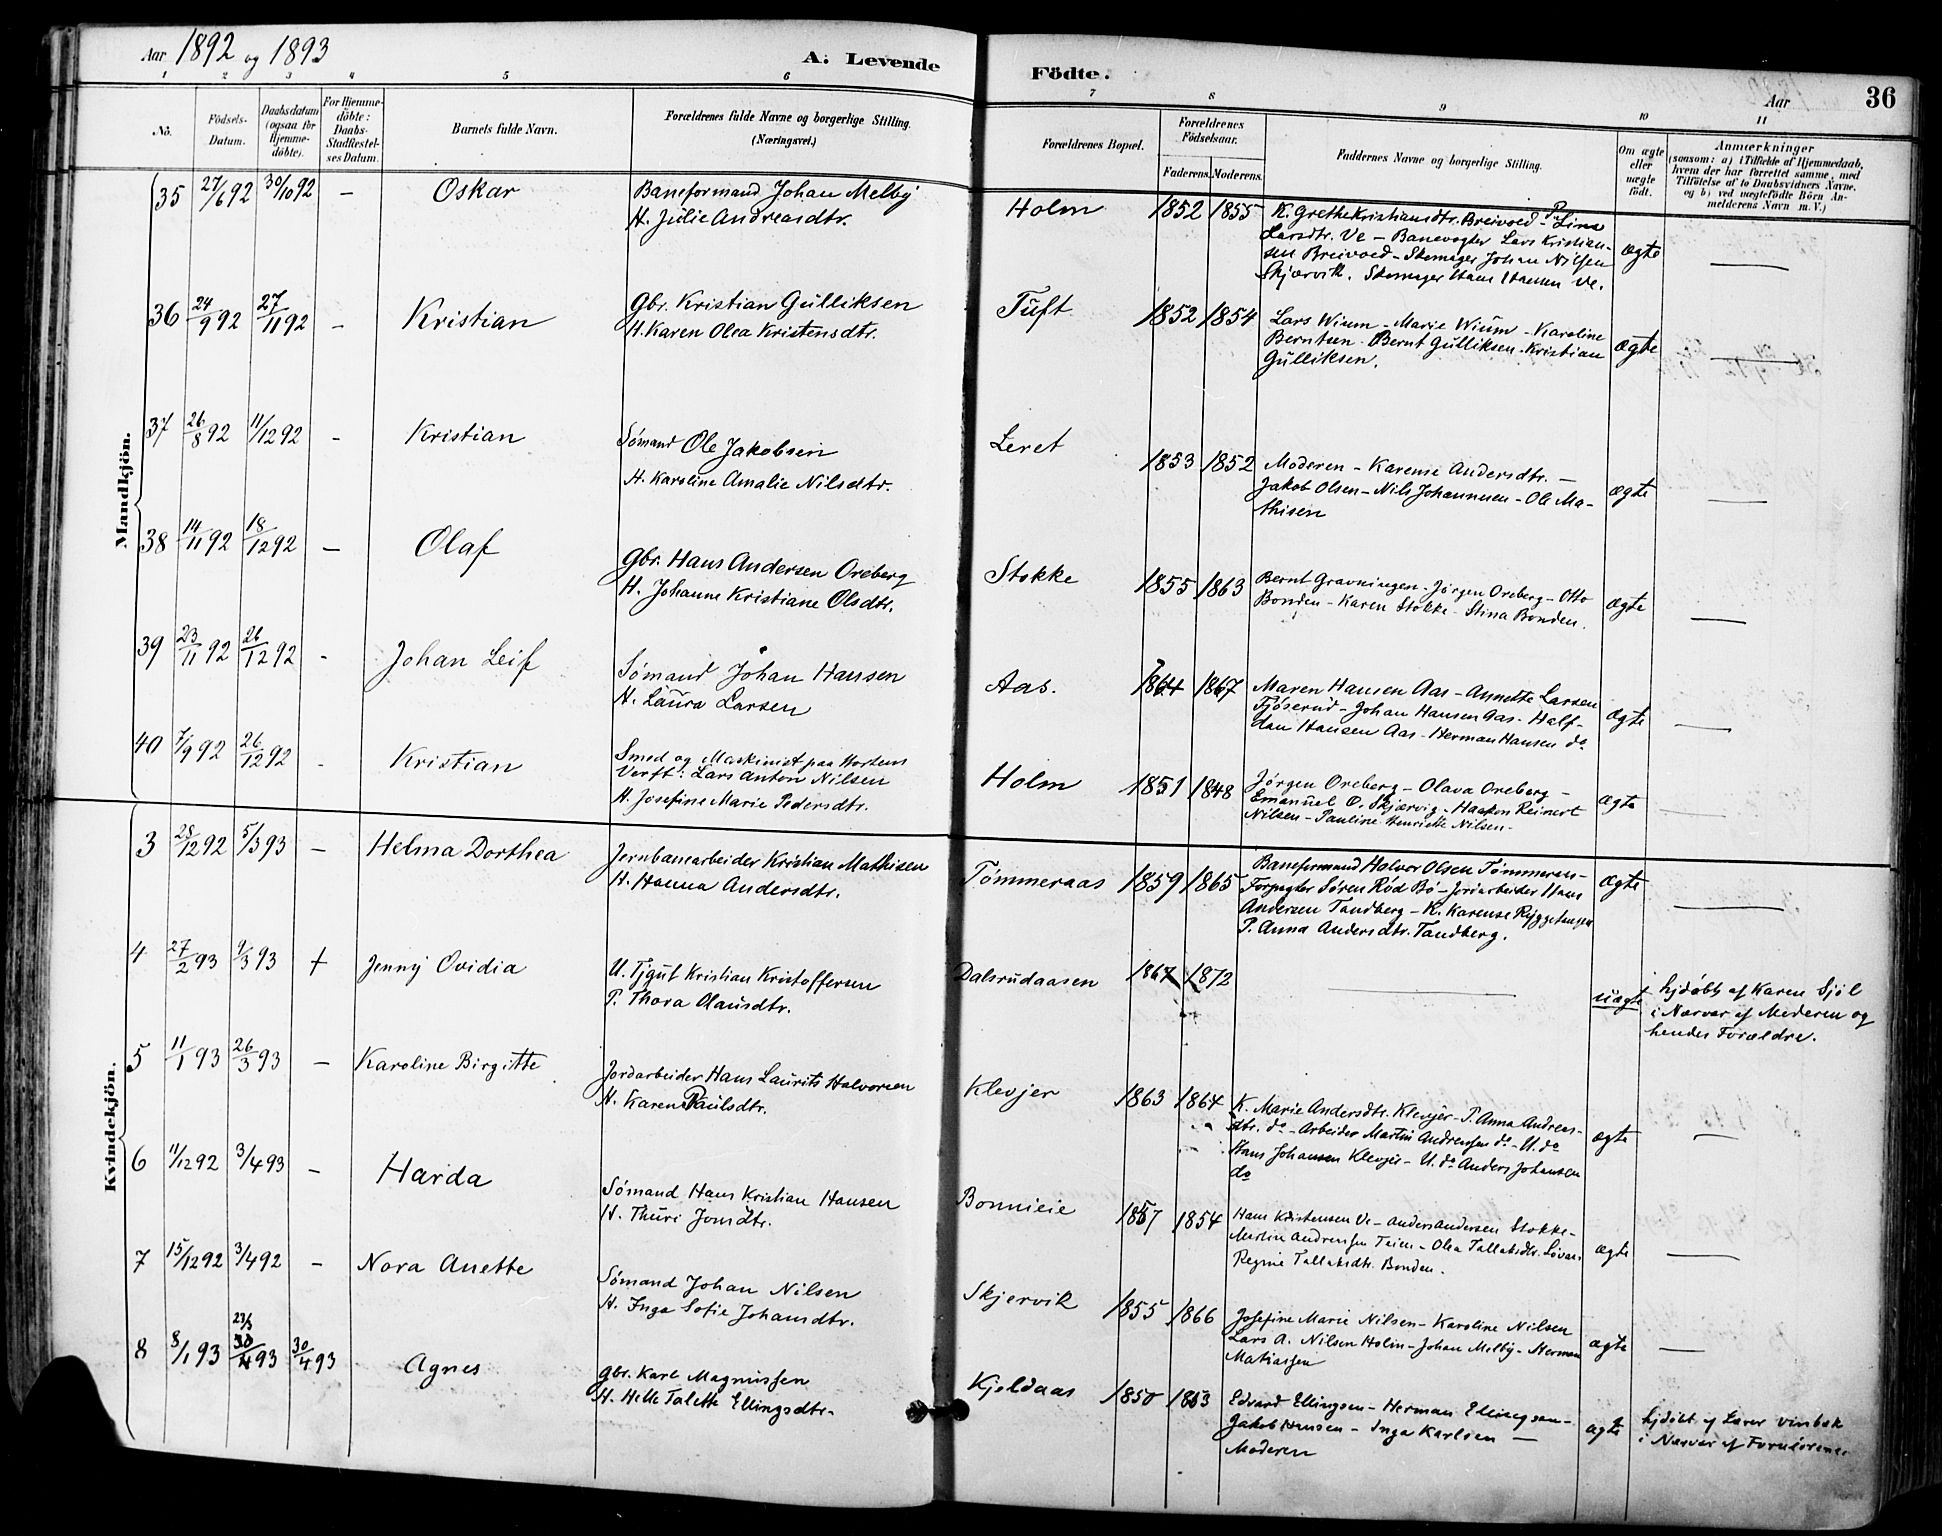 Aar 1892 og 1893
A. Levende Födte.
Aar
36
1 2 3 4 5 6 7 8 9 10 11
No.
Födsels-Datum.
Daabsdatum (ogsaa for Hjemme-döbte).
For Hjemme-döbte: Daabs-Stadfæstel-ses Datum.
Barnets fulde Navn.
Forældrenes fulde Navne og borgerlige Stilling. (Næringsvei.)
Forældrenes Bopæl.
Forældrenes Födselsaar.
Faderens. Moderens.
Faddernes Navne og borgerlige Stilling.
Om ægte eller uægte födt.
Anmærkninger
(saasom: a) i Tilfælde af Hjemmedaab, hvem der har forrettet samme, med Tilföielse af to Daabsvidners Navne, og b) ved uægtefödte Börn An-melderens Navn m. V.)
Mandkjön.
35 27/6 92 30/10 92 – Oskar
Baneformand Johan Melby
H. Julie Andreasdtr.
Holm 1852 1855
K. Grethe Kristiansdtr. Breivoed – P. Lina
Larsdtr. Ve – Banevogter Lars Kristian-
sen Breivoed – Skomager Johan Nilsen
Skjærvik. Skomager Hans Hansen Ve.
ægte
36 24/9 92 27/11 92 – Kristian
Gbr. Kristian Gulliksen
H. Karen Olea Kristensdtr.
Tuft 1852 1854
Lars Wium – Marie Wium – Karoline
Berntsen – Bernt Gulliksen – Kristian
Gulliksen.
ægte
37 26/8 92 11/12 92 – Kristian
Sømand Ole Jakobsen
H. Karoline Amalie Nilsdtr.
Leret 1853 1852
Moderen – Karense Andersdtr. –
Jakob Olsen – Nils Johannesen – Ole Ma-
thisen
ægte
38 14/11 92 18/12 92 – Olaf
Gbr. Hans Andersen Oreberg
H. Johanne Kristiane Olsdtr.
Stokke 1855 1863
Bernt Gravningen – Jørgen Oreberg – Otto
Bonden – Karen Stokke – Stina Bonden.
ægte
39 23/11 92 26/12 92 - Johan Leif
Sømand Johan Hansen
H. Laura Larsen
Aas. 1864 1867
Maren Hansen Aas – Annette Larsen
Fjøserud – Johan Hansen Aas – Half-
dan Hansen Aas – Herman Hansen do
ægte
40 7/9 92 26/12 92 - Kristian
Smed og Maskinist paa Hortens
Verft: Lars Anton Nilsen
H. Josefine Marie Pedersdtr.
Holm 1851 1848
Jørgen Oreberg – Olava Oreberg –
Emanuel O. Skjærvig – Haakon Reinert
Nilsen – Pauline Henriette Nilsen –
ægte
Kvindekjön.
3 28/12 92 5/3 93 – Helma Dorthea
Jernbanearbeider Kristian Mathisen
H. Hanna Andersdtr.
Tømmeraas 1859 1865
Baneformand Halvor Olsen Tømmeraas –
Forpagter Søren Rød Bø – Jordarbeider Hans
Andersen Tandberg – K. Karense
P. Anna Andersdtr. Tandberg.
ægte
4 27/2 93 9/3 93 + Jenny Ovidia
U. Tjgut Kristian Kristoffersen
P. Thora Olausdtr.
Dalsrudaasen 1867 1872
uægte
hjdøbt af Karen Sjøl
i Nærvær af Moderen og
hendes Forældre.
5 11/1 93 26/3 93 – Karoline Birgitte
Jordarbeider Hans Laurits Halvorsen
H. Karen Paulsdtr.
Klevjer 1863 1864
K. Marie Andersdtr. Klevjer – P. Anna Andreas-
dtr. do – Arbeider Martin Andreassen do – U. do
Hans Johansen Klevjer – U. do Anders Johansen
do
ægte
6 11/12 92 3/4 93 – Harda
Sømand Hans Kristian Hansen
H. Thuri Jonsdtr.
Bonnieie 1857 1854
Hans Kristensen Ve – Anders Andersen Stokke –
Martin Andreassen Teien – Olea Tallaksdtr.
Regine Tallaksdtr. Bonden.
ægte
7 15/12 92 3/4 92 – Nora Anette
Sømand Johan Nilsen
H. Inga Sofie Johansdtr.
Skjervik 1855 1866
Josefine Marie Nilsen – Karoline Nilsen
Lars A. Nilsen Holm – Johan Melby – Herman
Matiassen
ægte
8 8/1 93 23/3 30/4 93 30/4 93 Agnes
Gbr. Karl Magnussen
H. Helle Talette Ellingsdtr.
Kjeldaas 1850 1853
Edvard Ellingsen – Herman Ellingsen –
Jakob Hansen – Inga Karlsen –
Moderen
ægte
hjdøbt af Lærer Vinbæk
i Nærvær af